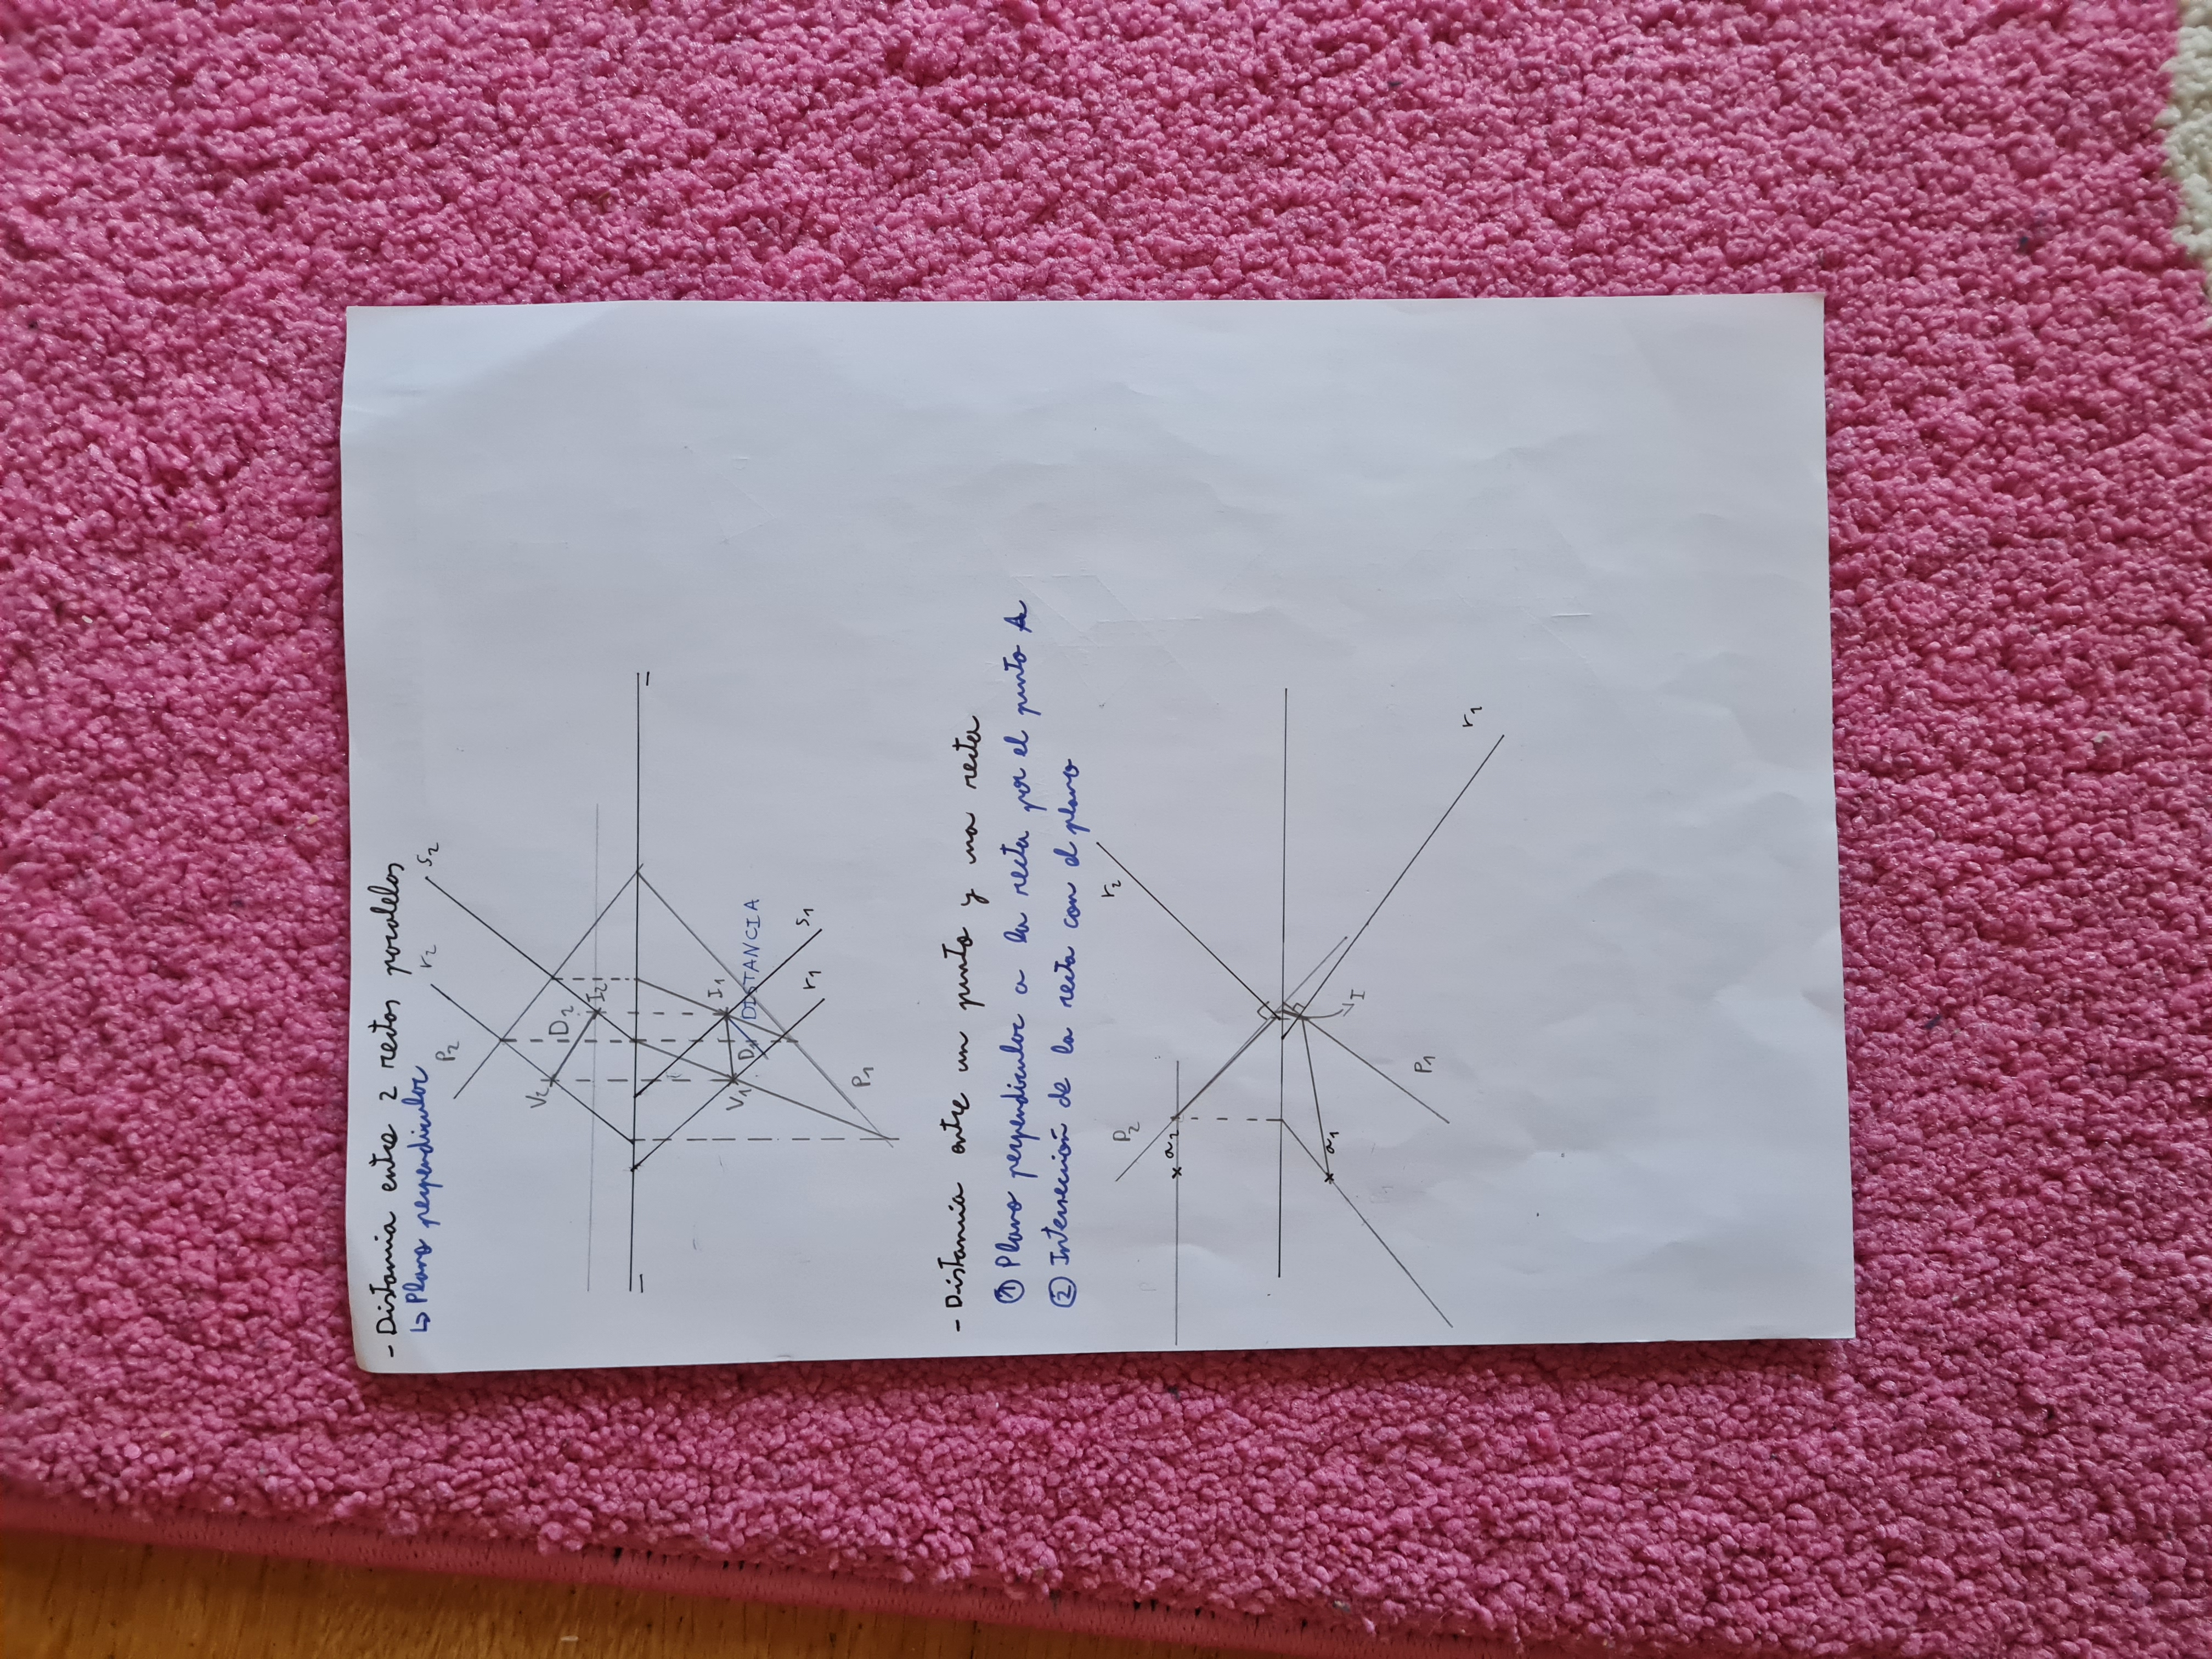 - Distancia entre 2 rectas paralelas
↳ Plano perpendicular
P₂ r₂ s₂
V₂ D₂ I₂
V₁ D₁ I₁
DISTANCIA
r₁ s₁
P₁
- Distancia entre un punto y una recta
① Plano perpendicular a la recta por el punto A
② Intersección de la recta con el plano
P₂ r₂
a₂
a₁
I
P₁
r₁